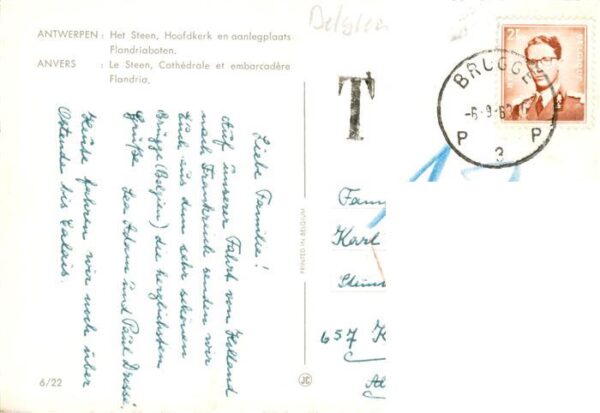 ANTWERPEN : Het Steen, Hoofdkerk en aanlegplaats
Flandriaboten.
ANVERS : Le Steen, Cathédrale et embarcadère
Flandria.
Belgien
T
2F
BRUGGE
-6-9-6
P 3 P
Liebe Familie!
Auf unserer Fahrt von Holland
nach Frankreich senden wir
Euch aus dem sehr schönen
Brügge (Belgien) die herzlichsten
Grüße Lea Adam und Paul
Heute fahren wir noch über
Ostende bis Calais.
PRINTED IN BELGIUM
JC
Fam
Karl
Stein
657 K
6/22